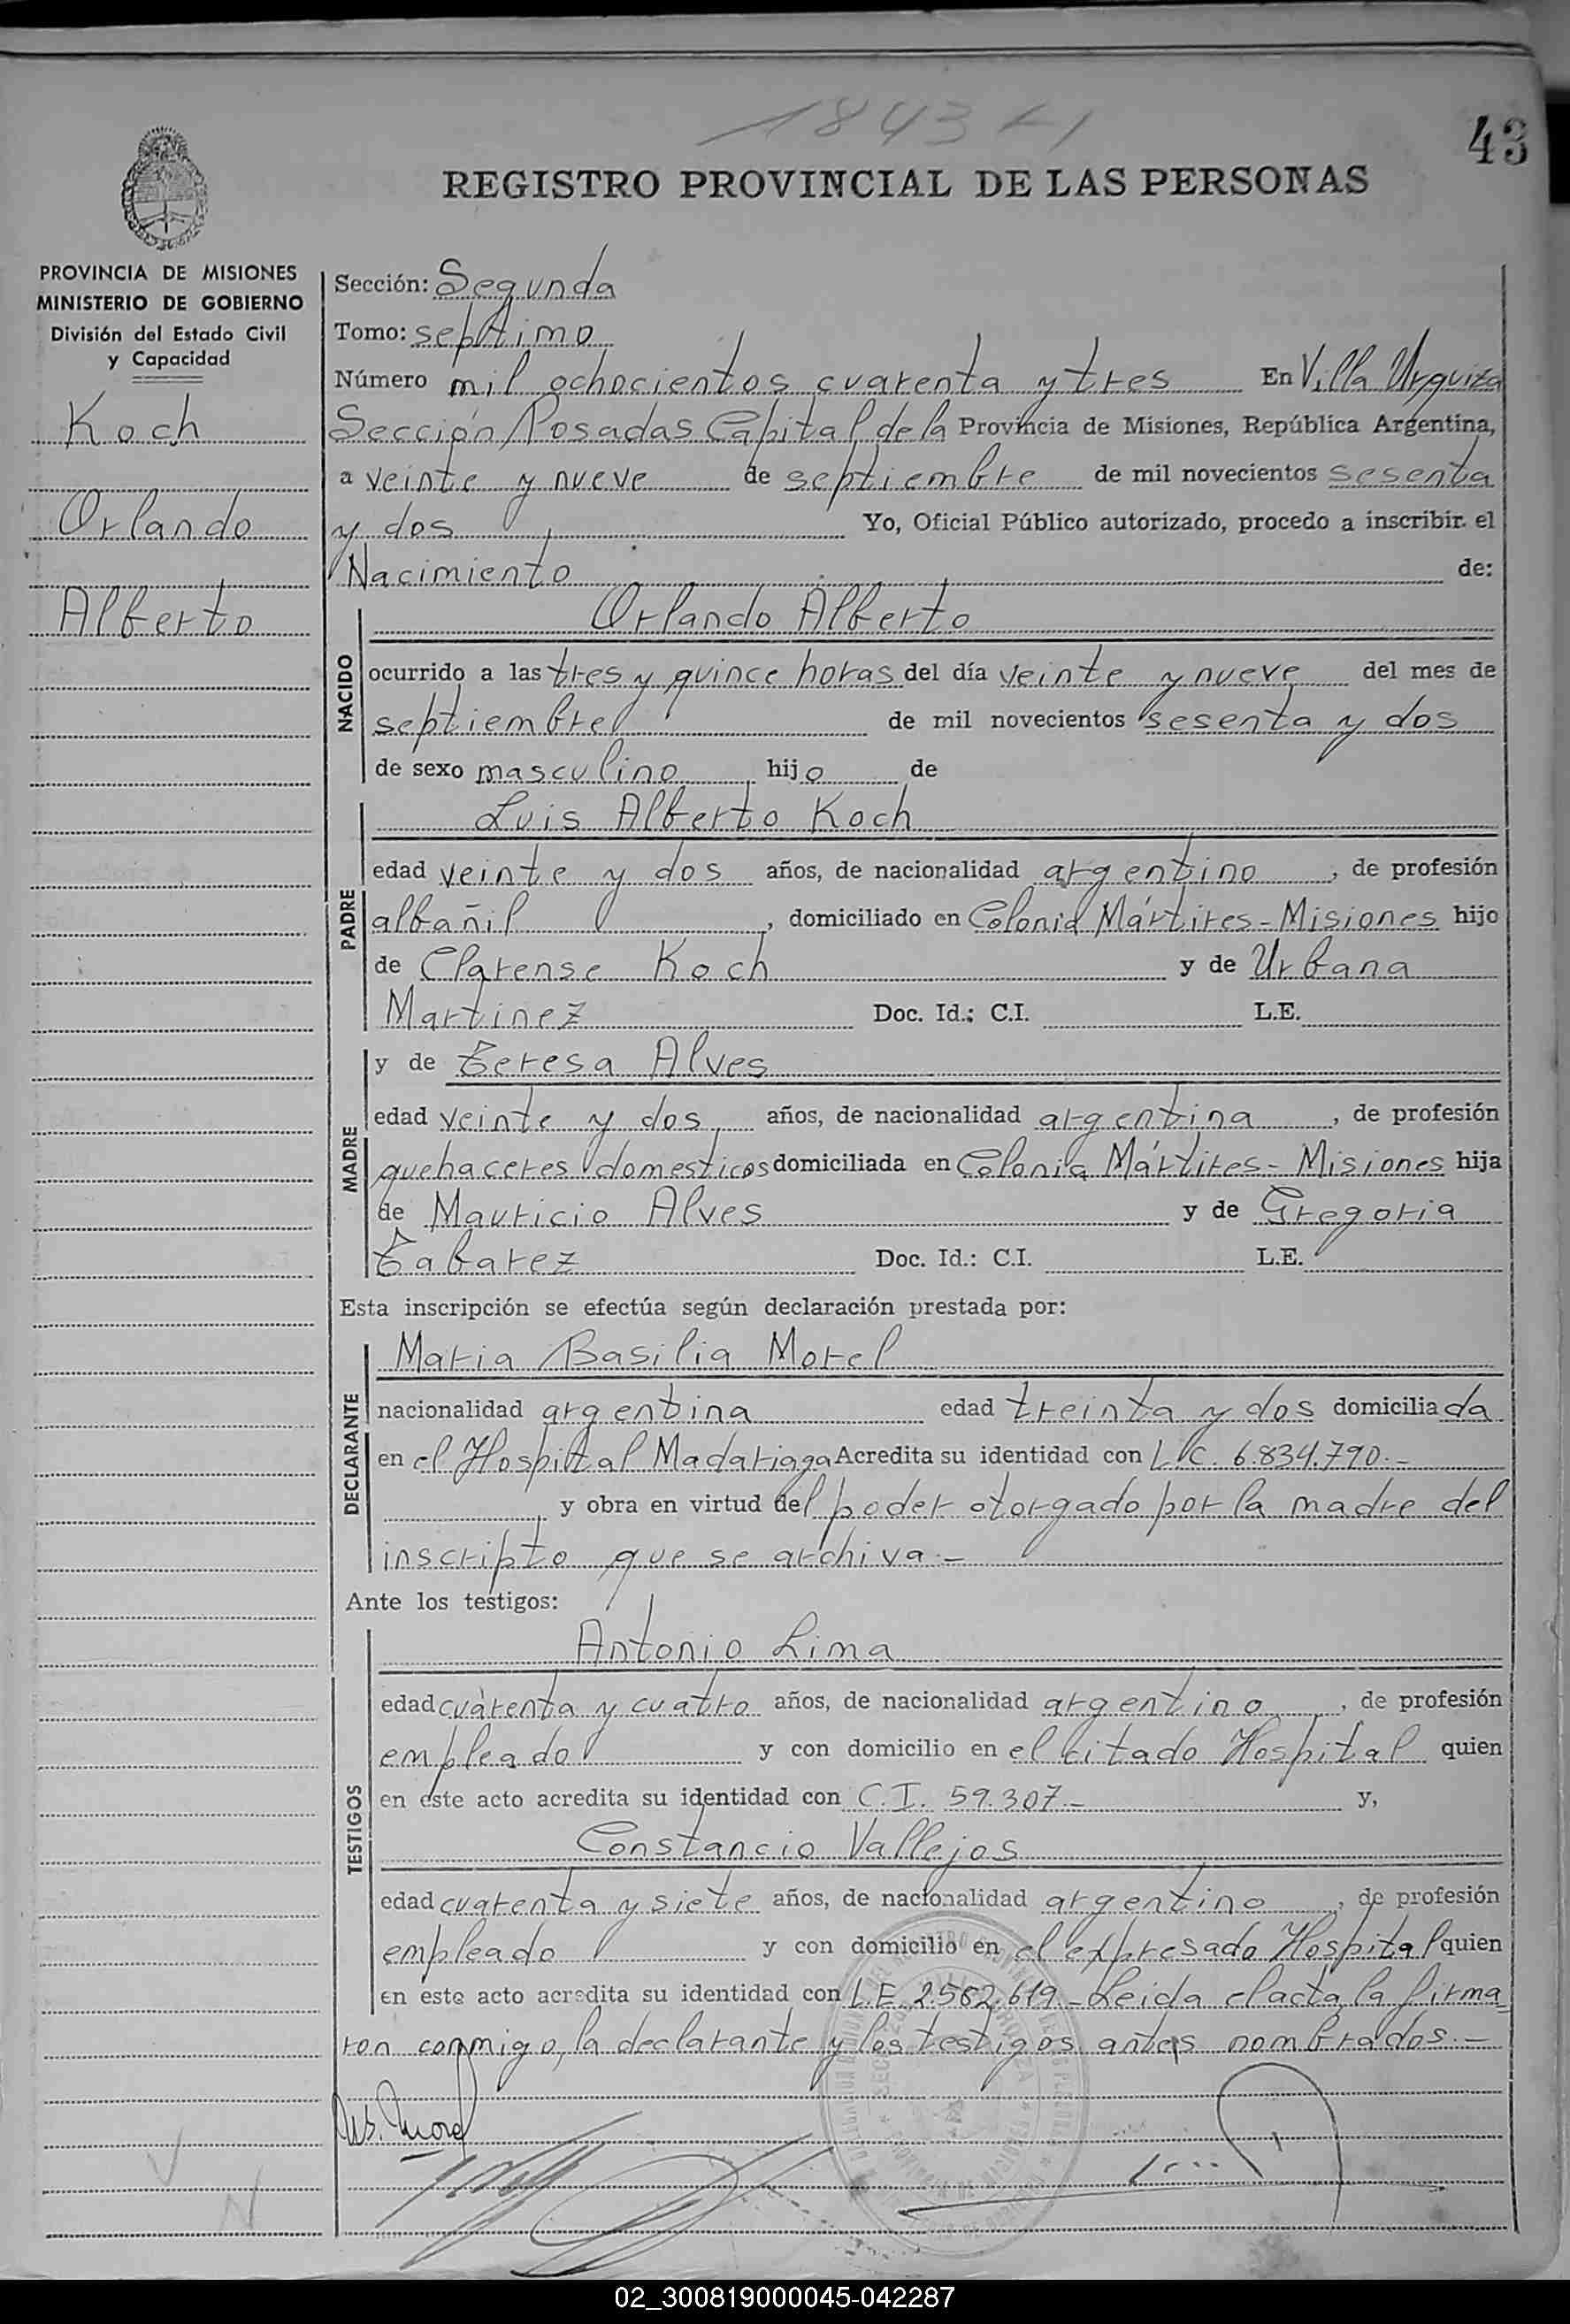 1843
43
REGISTRO PROVINCIAL DE LAS PERSONAS
PROVINCIA DE MISIONES
MINISTERIO DE GOBIERNO
División del Estado Civil
y Capacidad
Koch
Orlando
Alberto
Sección: Segunda
Tomo: septimo
Número mil ochocientos cuarenta y tres En Villa Urquiza
Sección Posadas Capital de la Provincia de Misiones, República Argentina,
a veinte y nueve de septiembre de mil novecientos sesenta
y dos Yo, Oficial Público autorizado, procedo a inscribir el
Nacimiento de:
NACIDO
Orlando Alberto
ocurrido a las tres y quince horas del día veinte y nueve del mes de
septiembre de mil novecientos sesenta y dos
de sexo masculino hijo de
PADRE
Luis Alberto Koch
edad veinte y dos años, de nacionalidad argentino, de profesión
albañil, domiciliado en Colonia Mártires - Misiones hijo
de Clarense Koch y de Urbana
Martinez Doc. Id.: C.I. L.E.
MADRE
y de Teresa Alves
edad veinte y dos años, de nacionalidad argentina, de profesión
quehaceres domesticos domiciliada en Colonia Mártires - Misiones hija
de Mauricio Alves y de Gregoria
Tabarez Doc. Id.: C.I. L.E.
Esta inscripción se efectúa según declaración prestada por:
DECLARANTE
Maria Basilia Morel
nacionalidad argentina edad treinta y dos domiciliada
en el Hospital Madariaga Acredita su identidad con L.C. 6.834.790.-
y obra en virtud del poder otorgado por la madre del
inscripto que se archiva.-
Ante los testigos:
TESTIGOS
Antonio Lima
edad cuarenta y cuatro años, de nacionalidad argentino, de profesión
empleado y con domicilio en el citado Hospital quien
en este acto acredita su identidad con C.I. 59.307.- y,
Constancio Vallejos
edad cuarenta y siete años, de nacionalidad argentino, de profesión
empleado y con domicilio en el expresado Hospital quien
en este acto acredita su identidad con L.E. 2.562.619.- Leida el acta, la firma=
ron conmigo, la declarante y los testigos antes nombrados.-
Morel
02_300819000045-042287